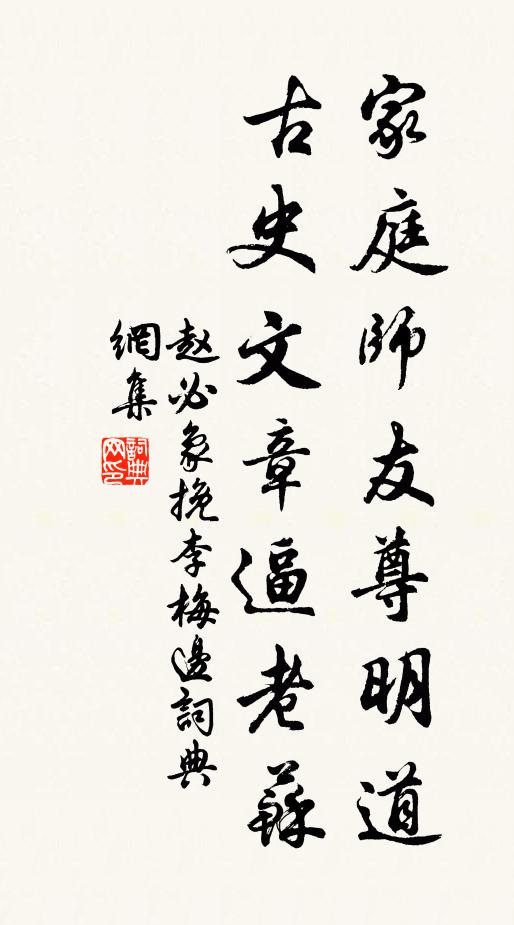 家庭師友尊明道
古史文章逼老蘇
趙必象挽李梅邊詞典
網集
詞典网印